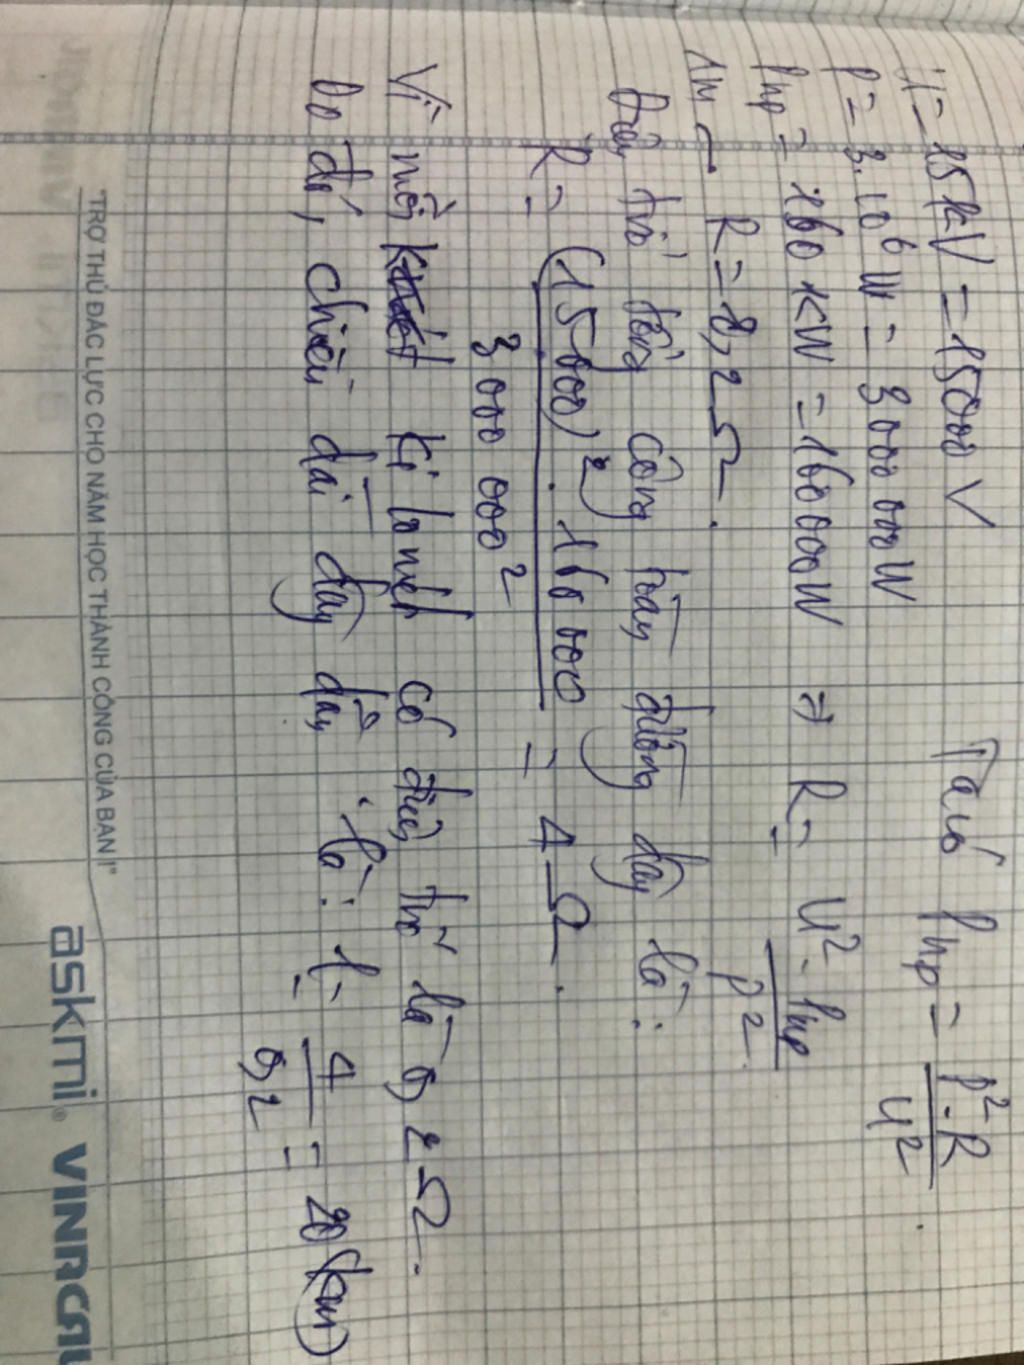 U = 15 kV = 15000 V
Ta có Php = P². R / U²
P = 3.10⁶ W = 3 000 000 W
Php = 160 KW = 160 000W ⇒ R = U². Php / P²
1m – R = 0,2 Ω.
Điện trở tổng cộng toàn đường dây là:
R = (15 000)². 160 000 / 3 000 000² = 4 Ω.
Vì mỗi ki lo mét có điện trở là 0,2 Ω.
Do đó, chiều dài dây dẫn là: l = 4 / 0,2 = 20 (km)
"TRỢ THỦ ĐẮC LỰC CHO NĂM HỌC THÀNH CÔNG CỦA BẠN!"
askmi® VINACAL